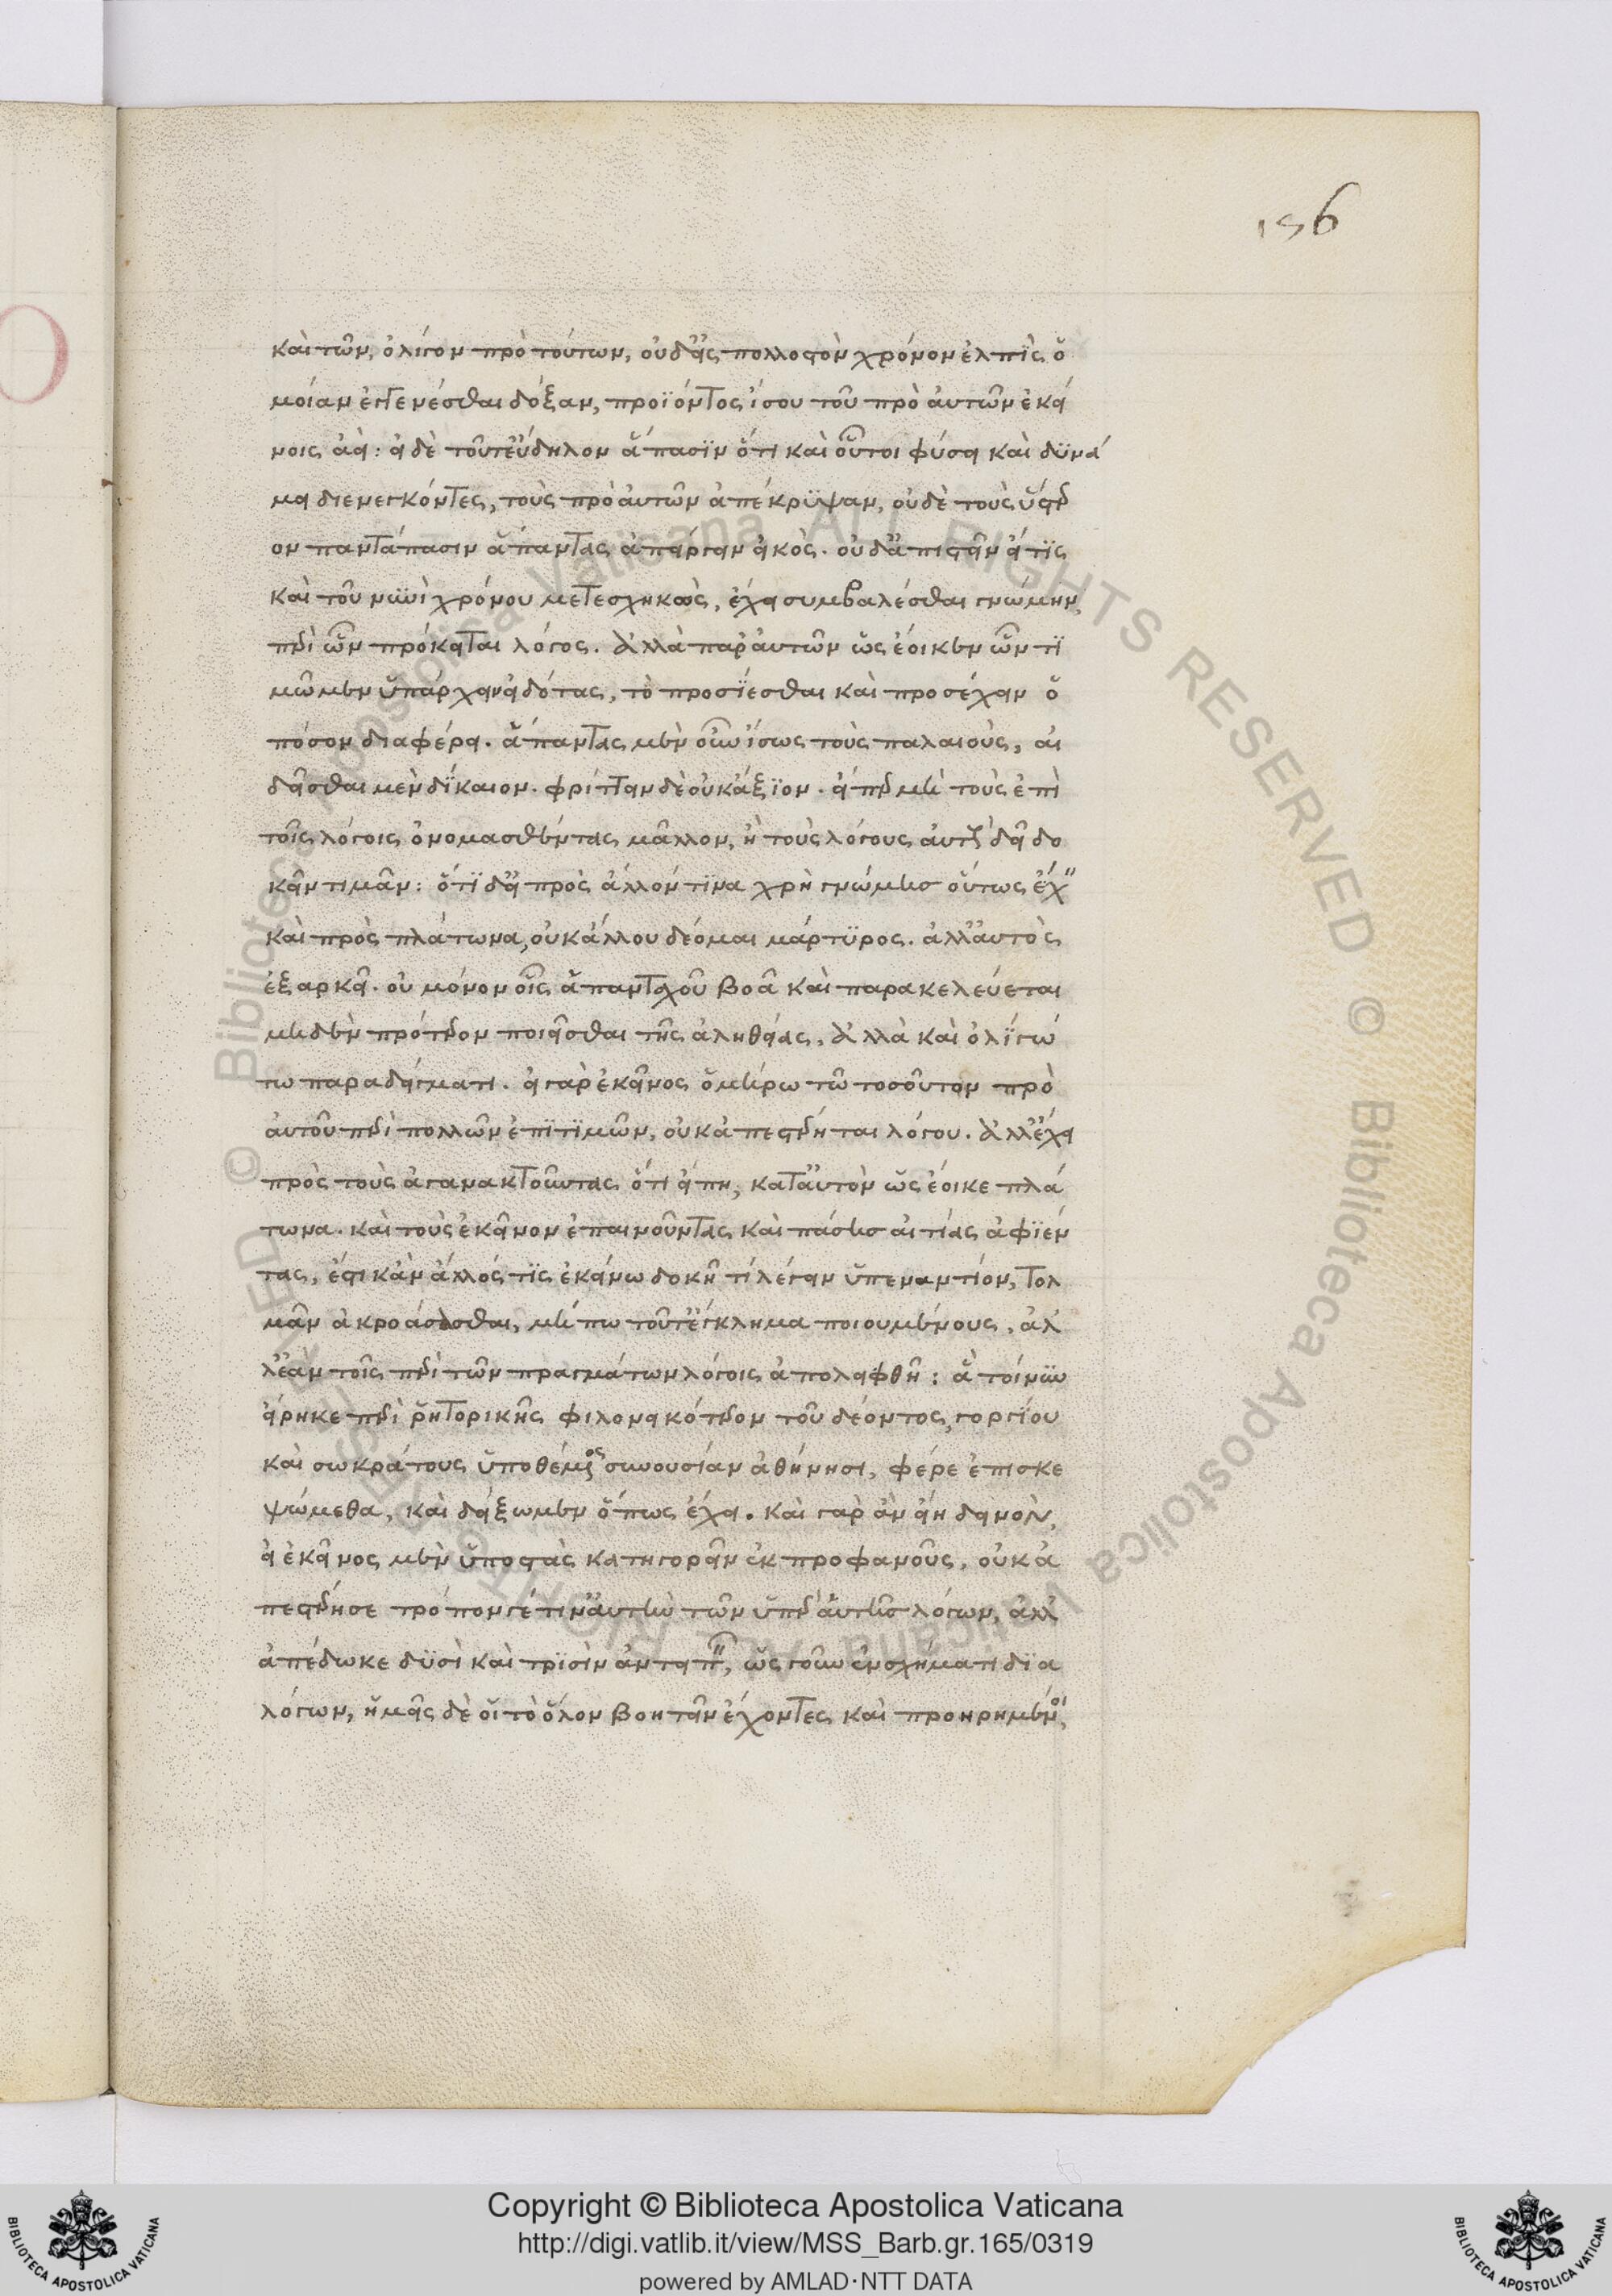 156
καὶ τῶν ὀλίγον πρὸ τούτων, οὐδ' εἰς πολλοστὸν χρόνον ἐλπὶς ὁ
μοίαν ἐγγενέσθαι δόξαν, προϊόντος ἴσου τοῦ πρὸ αὐτῶν ἐκεί
νοις ἀεὶ: εἰ δὲ τοῦτ' εὔδηλον ἅπασιν ὅτι καὶ οὗτοι φύσει καὶ δυνά
μει διενεγκόντες, τοὺς πρὸ αὐτῶν ἀπέκρυψαν, οὐδὲ τοὺς ὕστερ
ον παντάπασιν ἅπαντας ἀπείργειν εἰκὸς. οὐδ' ἀπιστεῖν εἴ τις
καὶ τοῦ νυνὶ χρόνου μετεσχηκὼς, ἔχει συμβαλέσθαι γνώμην,
περὶ ὧν πρόκειται λόγος. ἀλλὰ παρ' αὐτῶν ὡς ἔοικεν ὧν τι
μῶμεν ὑπάρχει εἰδότας, τὸ προσίεσθαι καὶ προσέχειν ὁ
πόσον διαφέρει. ἅπαντας μὲν οὖν ἴσως τοὺς παλαιοὺς, αἰ
δεῖσθαι μὲν δίκαιον. φρίττειν δὲ οὐκ ἄξιον. εἴπερ μὴ τοὺς ἐπὶ
τοῖς λόγοις ὀνομασθέντας μᾶλλον, ἢ τοὺς λόγους αὐτοὺς δεῖ δο
κεῖν τιμᾶν: ὅτι δ' εἰ πρὸς ἄλλον τινα χρὴ γνώμης οὕτως ἔχειν
καὶ πρὸς πλάτωνα, οὐκ ἄλλου δέομαι μάρτυρος. ἀλλ' αὐτὸς
ἐξαρκεῖ. οὐ μόνον οἷς ἁπανταχοῦ βοᾶ καὶ παρακελεύεται
μηδὲν πρότερον ποιεῖσθαι τῆς ἀληθείας, ἀλλὰ καὶ ὀλίγω
τω παραδείγματι. εἰ γὰρ ἐκεῖνος ὁμήρω τῶ τοσοῦτον πρὸ
αὐτοῦ περὶ πολλῶν ἐπιτιμῶν, οὐκ ἀπεστέρηται λόγου. ἀλλ' ἔχει
πρὸς τοὺς ἀγανακτοῦντας ὅτι εἴπη, κατ' αὐτὸν ὡς ἔοικε πλά
τωνα. καὶ τοὺς ἐκεῖνον ἐπαινοῦντας καὶ πάσης αἰτίας ἀφιέν
τας, ἔστι κἂν ἄλλός τις ἐκείνω δοκῆ τί λέγειν ὑπεναντίον, τολ
μᾶν ἀκροάσασθαι, μή πω τοῦτ' ἔγκλημα ποιουμένους, ἀλ
λ' ἐὰν τοῖς περὶ τῶν πραγμάτων λόγοις ἀπολειφθῆ: ἃ τοίνυν
εἴρηκε περὶ ῥητορικῆς φιλονεικότερον τοῦ δέοντος, γοργίου
καὶ σωκράτους ὑποθέμενος συνουσίαν ἀθήνησι, φέρε ἐπισκε
ψώμεθα, καὶ δείξωμεν ὅπως ἔχει. καὶ γὰρ ἂν εἴη δεινὸν,
εἰ ἐκεῖνος μὲν ὑποστὰς κατηγορεῖν ἐκ προφανοῦς, οὐκ ἀ
πεστέρησε τρόπον γέ τιν' αὐτὴν τῶν ὑπὲρ αὐτῆς λόγων, ἀλλ'
ἀπέδωκε δυσὶ καὶ τρισὶν ἀντειπεῖν, ὡς γοῦν ἐν σχήματι δια
λόγων, ἡμᾶς δὲ οἱ τὸ ὅλον βοηθεῖν ἔχοντες καὶ προηρημένοι,
Copyright © Biblioteca Apostolica Vaticana
http://digi.vatlib.it/view/MSS_Barb.gr.165/0319
powered by AMLAD·NTT DATA